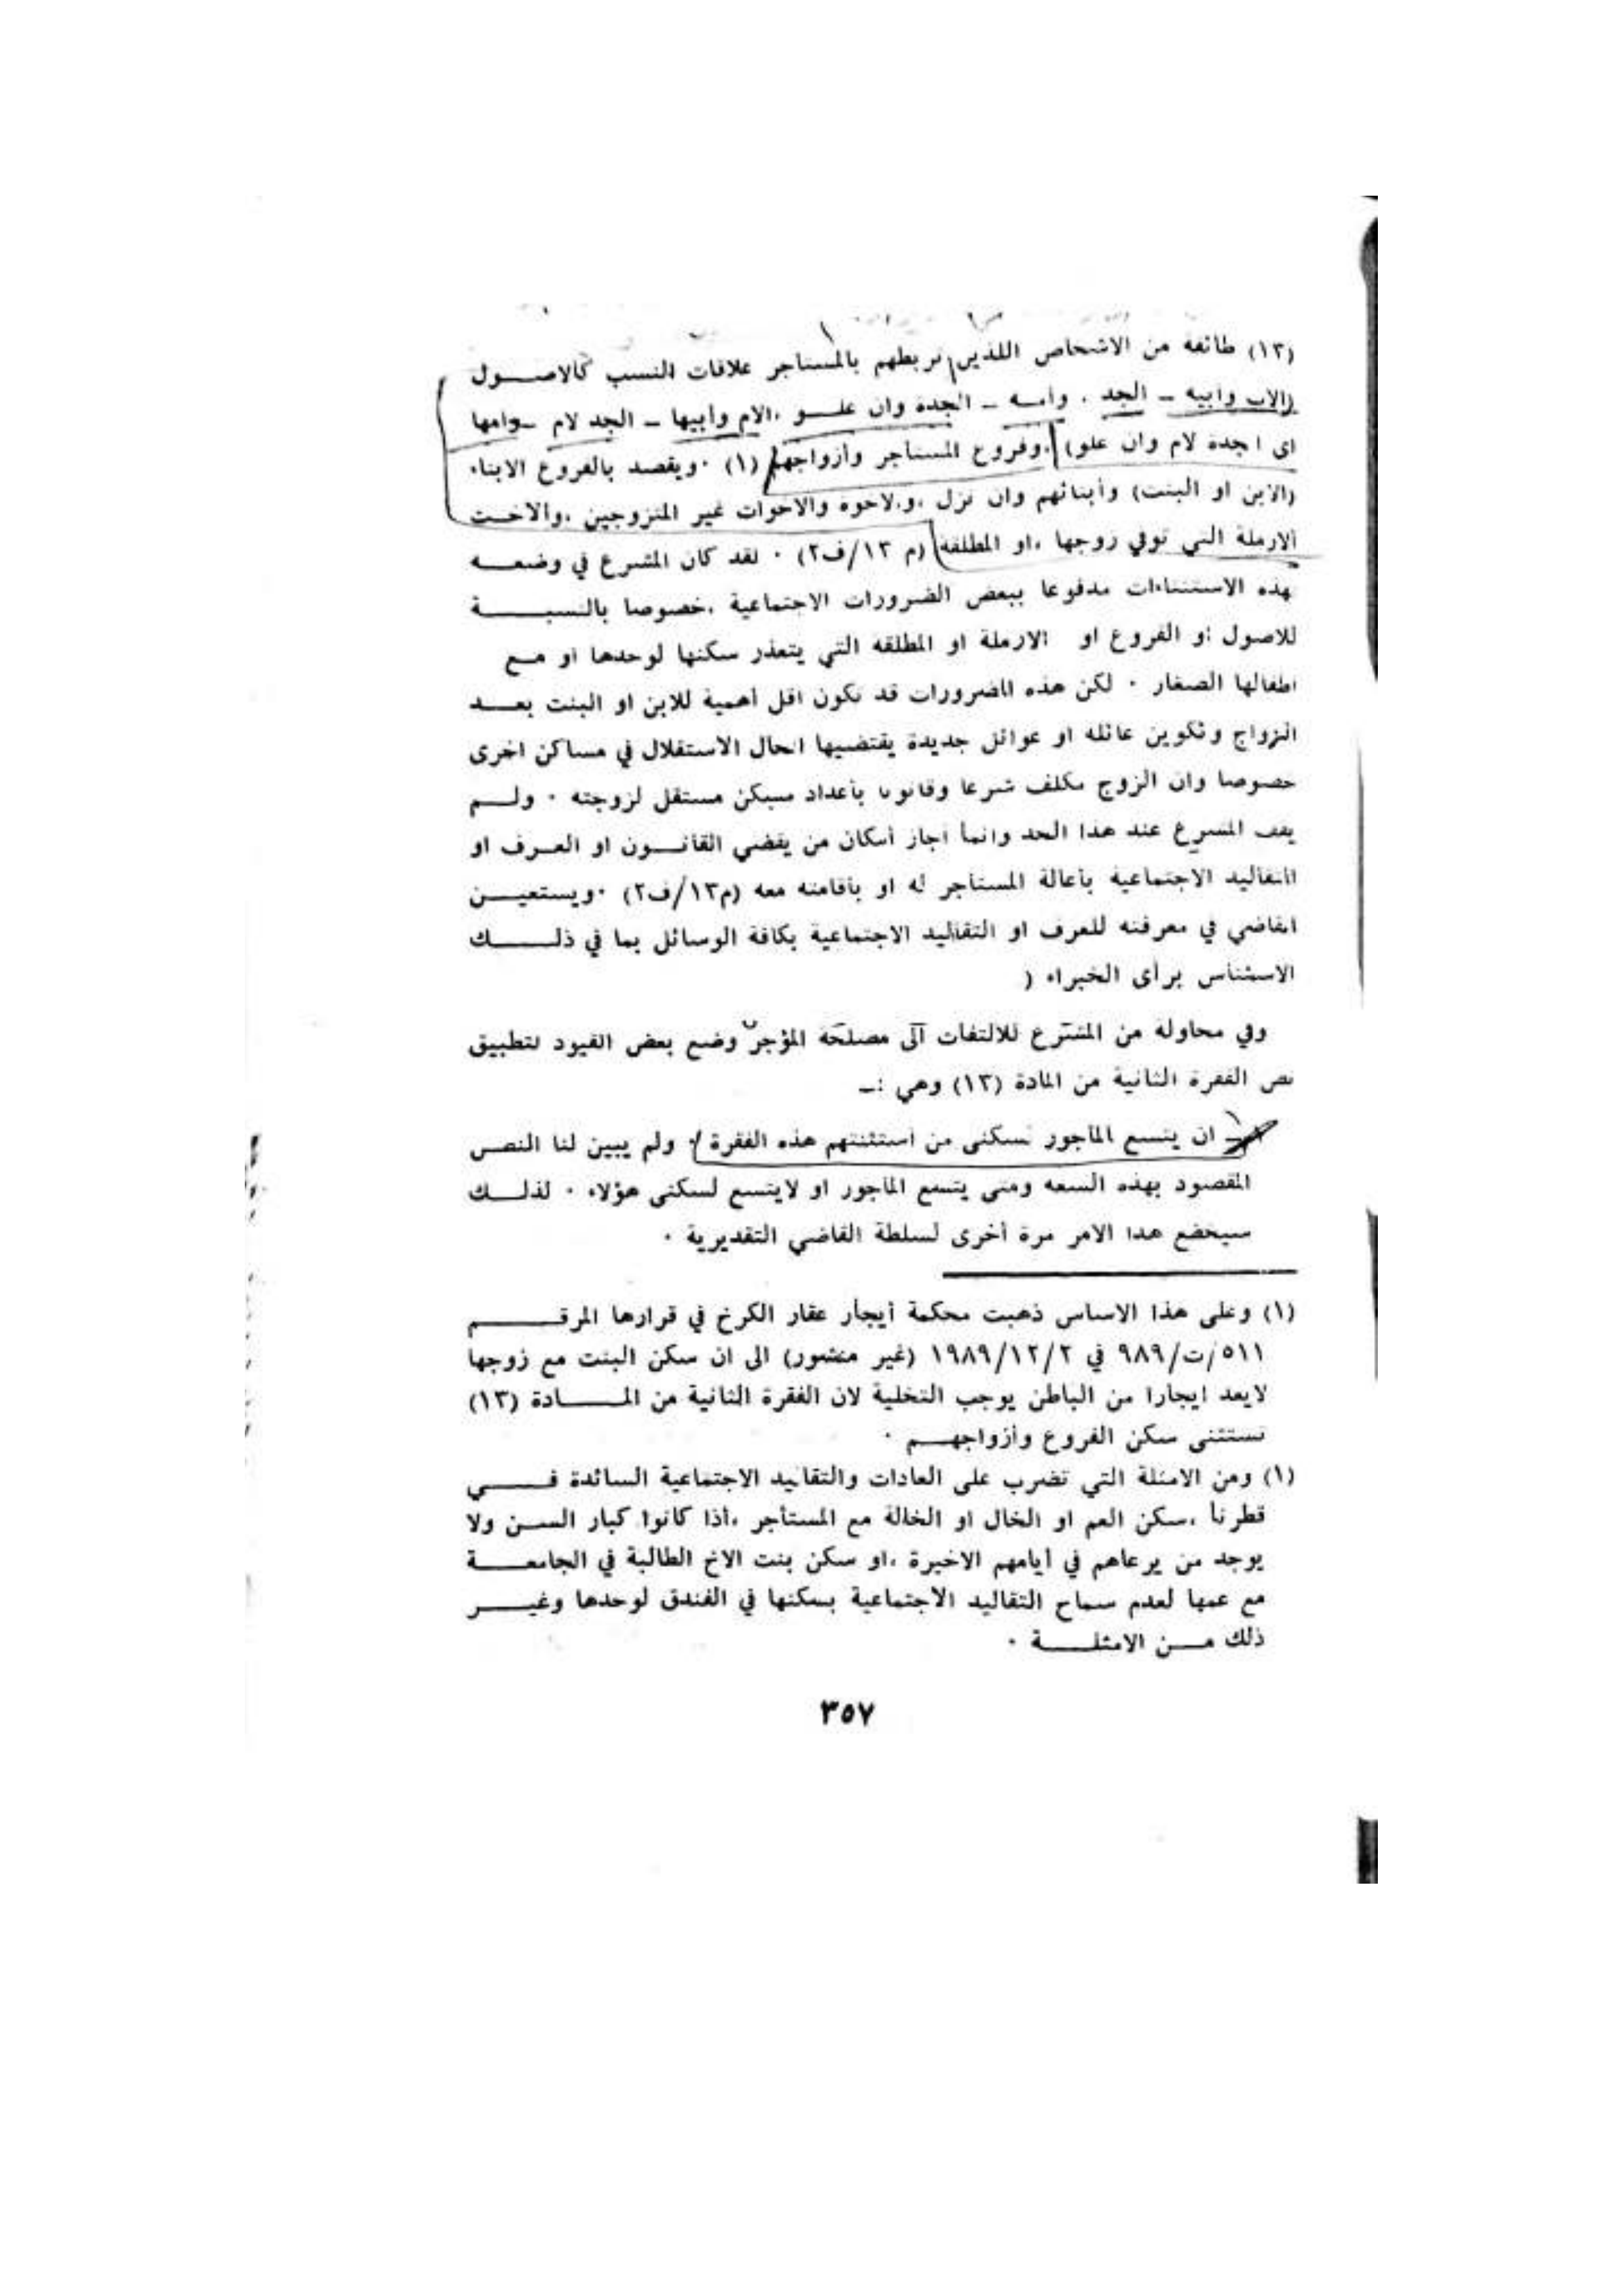 (١٣) طائفه من الاشخاص اللذين تربطهم بالمستاجر علاقات النسب كالاصــول
(الاب وابيه – الجد . وامـه – الجدة وان علــو .الام وأبيها – الجد لام –وامها
اى اجدة لام وان علو) .وفروع المستاجر وأزواجهم (١) .ويقصد بالفروع الابناء
(الابن او البنت) وأبنائهم وان نزل .والاخوة والاخوات غير المتزوجين .والاخــت
الارملة التي توفي زوجها .او المطلقه (م ١٣/ف٢) . لقد كان المشرع في وضعــه
بهذه الاستثناءات مدفوعا ببعض الضرورات الاجتماعية .خصوصا بالنسبــــة
للاصول او الفروع او الارملة او المطلقه التي يتعذر سكنها لوحدها او مــع
اطفالها الصغار . لكن هذه الضرورات قد تكون اقل أهمية للابن او البنت بعــد
الزواج وتكوين عائله او عوائل جديدة يقتضيها الحال الاستقلال في مساكن اخرى
خصوصا وان الزوج مكلف شرعا وقانونا بأعداد مسكن مستقل لزوجته . ولــم
يقف المشرع عند هذا الحد وانما اجاز أسكان من يقضي القانــون او العـرف او
التقاليد الاجتماعية بأعالة المستأجر له او بأقامته معه (م١٣/ف٢) .ويستعيــن
القاضي في معرفته للعرف او التقاليد الاجتماعية بكافة الوسائل بما في ذلــــك
الاستئناس برأى الخبراء (
وفي محاولة من المشرع للالتفات الى مصلحة المؤجر وضع بعض القيود لتطبيق
نص الفقرة الثانية من المادة (١٣) وهي :–
١– ان يتسع المأجور لسكنى من استثنتهم هذه الفقرة . ولم يبين لنا النص
المقصود بهذه السعه ومتى يتسع الماجور او لايتسع لسكنى هؤلاء . لذلــك
سيخضع هذا الامر مرة أخرى لسلطة القاضي التقديرية .
(١) وعلى هذا الاساس ذهبت محكمة أيجار عقار الكرخ في قرارها المرقــــم
٥١١/ت/٩٨٩ في ١٩٨٩/١٢/٢ (غير منشور) الى ان سكن البنت مع زوجها
لايعد ايجارا من الباطن يوجب التخلية لان الفقرة الثانية من المــــادة (١٣)
تستثنى سكن الفروع وأزواجهــم .
(١) ومن الامثلة التي تضرب على العادات والتقاليد الاجتماعية السائدة فــــي
قطرنا .سكن العم او الخال او الخالة مع المستأجر .أذا كانوا كبار الســن ولا
يوجد من يرعاهم في أيامهم الاخيرة .او سكن بنت الاخ الطالبة في الجامعــــة
مع عمها لعدم سماح التقاليد الاجتماعية بسكنها في الفندق لوحدها وغيــــر
ذلك مــن الامثلــــة .
٣٥٧